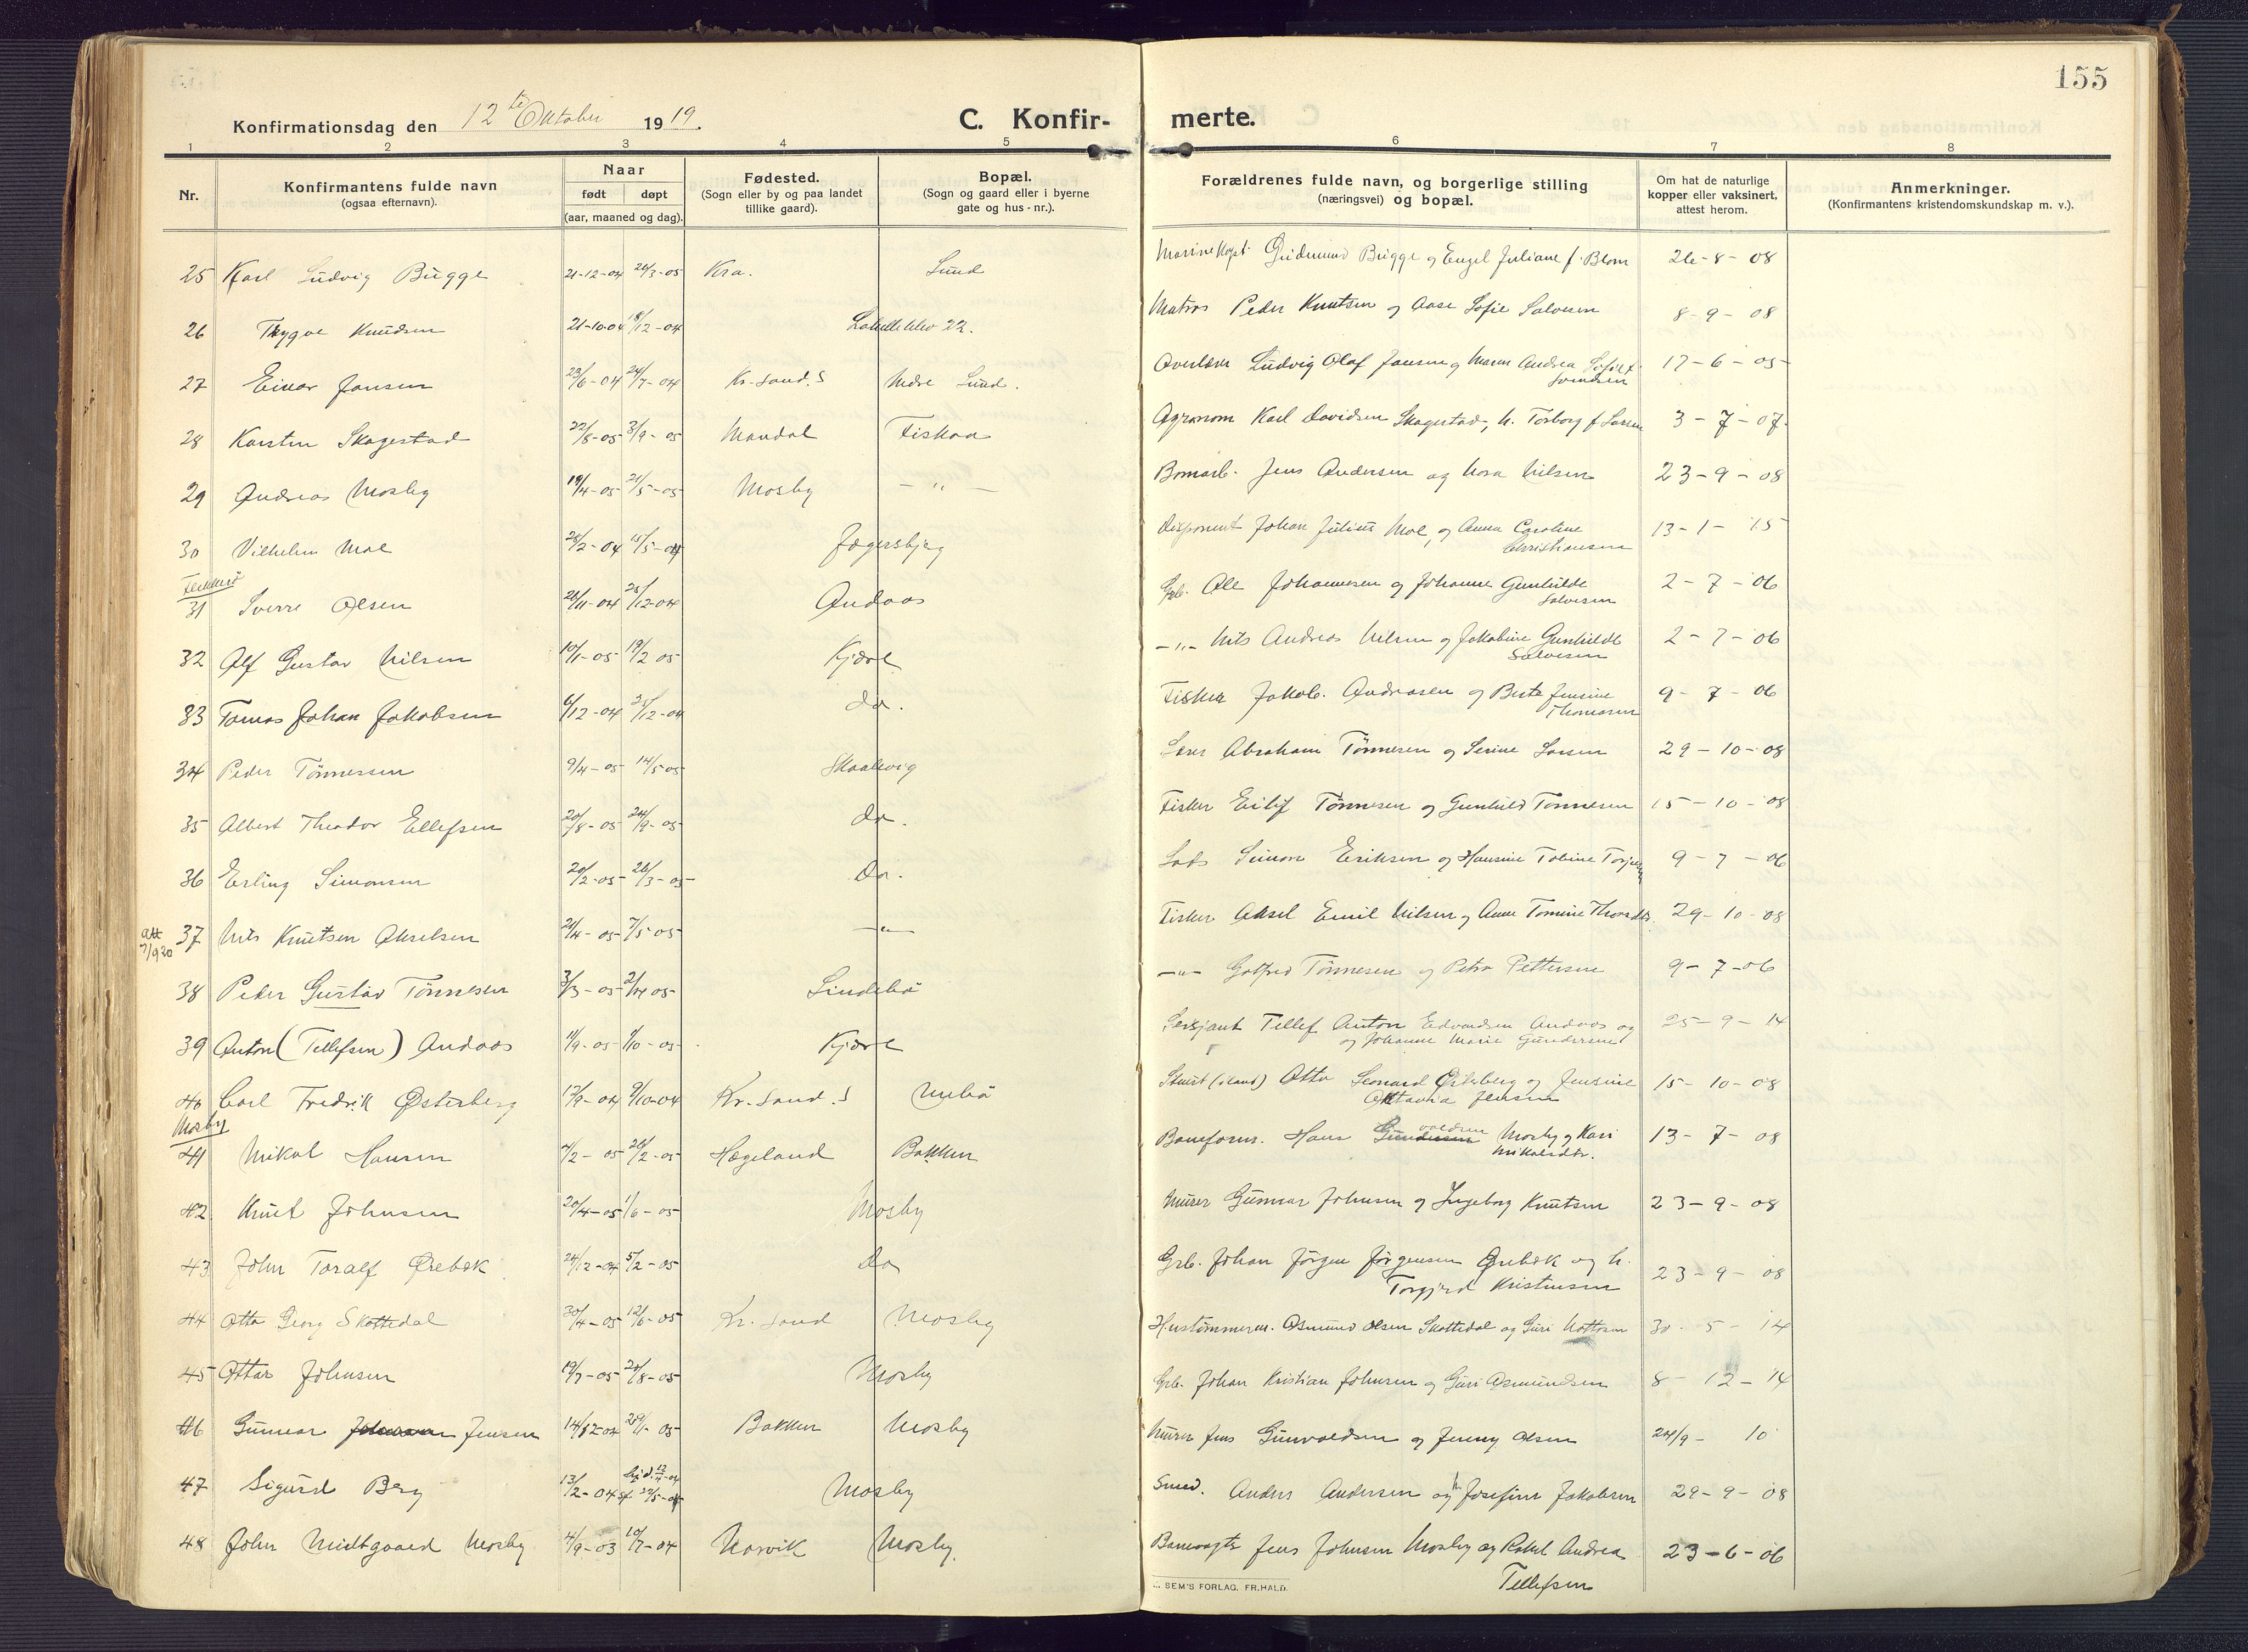 155
Konfirmationsdag den 12te Oktober 1919.
C. Konfirmerte.
1 2 3 4 5 6 7 8
Nr. Konfirmantens fulde navn (ogsaa efternavn). Naar født døpt (aar, maaned og dag). Fødested. (Sogn eller by og paa landet tillike gaard). Bopæl. (Sogn og gaard eller i byerne gate og hus-nr.). Forældrenes fulde navn, og borgerlige stilling (næringsvei) og bopæl. Om hat de naturlige kopper eller vaksinert, attest herom. Anmerkninger. (Konfirmantens kristendomskundskap m. v.).
25 Karl Ludvig Bugge 21-12-04 26/3-05 Kra. Lund Marinekapt. Gudmund Bugge og Engel Juliane f. Blom 26-8-08
26 Trygve Knudsen 21-10-04 18/12-04 22. Matros Peder Knutsen og Aase Sofie Salvesen 8-9-08
27 Einar Jansen 23/6-04 24/7-04 Kr.sand.S Indre Lund. Overlærer Ludvig Olaf Jansen og Maren Andrea Sofie f. 17-6-05
28 Karsten Skagestad 22/8-05 3/9-05 Mandal Fiskaa Agronom Karl Davidsen Skagestad, h. Torborg f Larsen 3-7-07
29 Andreas Mosby 19/4-05 21/5-05 Mosby —"— Bomarb. Jens Andersen og Nora Nilsen 23-9-08
30 Vilhelm Moe 28/2-04 15/5-04 Jægersbjerg Disponent Johan Julius Moe, og Anna Caroline Christiansen 13-1-15
Flekkerö
31 Sverre Olsen 21/11-04 25/12-04 Andaas Grb. Ole Johannesen og Johanne Gunhilde Salvesen 2-7-06
32 Alf Gustav Nilsen 10/1-05 19/2 05 Kjære —"— Nils Andreas Nilsen og Jakobine Gunhilde Salvesen 2-7-06
33 Tomas Johan Jakobsen 6/12-04 /12-04 do. Fisker Jakob. Andreasen og Berte Jensine Thomasen 9-7-06
34 Peder Tönnessen 9/4-05 14/5 05 Skaalevig Abraham Tönnesen og Serine Larsen 29-10-08
35 Albert Theodor Ellefsen 20/8-05 24/9-05 do. Fisker Eilef Tönnesen og Gunhild Tönnesen 15-10-08
36 Erling Simonsen 20/2-05 26/3-05 Do. Lods Simon Eriksen og Hansine Tobine 9-7-06
att 7/9 20
37 Nils Knutsen Akselsen 21/4-05 7/5-05 —"— Fisker Aksel Emil Nilsen og Anne Tomine Thorsdtr. 29-10-08
38 Peder Gustav Tönnesen 3/3-05 2/4 05 Lindebö —"— Gotfred Tönnesen og Petra Pettersen 9-7-06
39 Anton (Tellefsen) Andaas 11/9-05 /10-05 Kjære Sersjant Tellef Anton Edvardsen Andaas og og Johanne Marie Gundersen 25-9-14
40 Carl Fredrik Østerberg 17/9-04 9/10-04 Kr.sand.S Mebö Stuert (iland) Otto Leonard Østerberg og Jensine Oktavia Jensen 15-10-08
Mosby
41 Mikal Hansen 4/2-05 26/2-05 Hægeland Bakken Baneform. Hans Gundersen Mosby og Kari Mikalsdtr. 13-7-08
42 Knut Johnsen 20/4-05 1/6-05 Mosby Murer Gunnar Johnsen og Ingeborg Knutsen 23-9-08
43 John Toralf Ørebæk 24/12-04 5/2-05 Do Grb. Johan Jörgen Jörgensen Ørebæk og h. Torgjerd Kristensen 23-9-08
44 Otto Georg Skottedal 30/4-05 12/6-05 Kr.sand Mosby Hustömmerm. Osmund Olsen Skottedal og Guri 30-5-14
45 Ottar Johnsen 19/7-05 20/8-05 Mosby Grb. Johan Kristian Johnsen og Guri Osmundsen 8-12-14
46 Gunnar Johnsen Jensen 14/12-04 29/1-05 Bakken Mosby Murer Jens Gunvaldsen og Jenny Olsen 24/9-10
47 Sigurd Berg 13/2-04 22/5-04 Mosby Smed. Anders Andersen og h. Josefine Jakobsen 29-9-08
48 John Midtgaard Mosby 4/9-03 10/7-04 Narvik Mosby. Banevogter Jens Johnsen Mosby og Rakel Andrea Tellefsen 23-6-06
SEM'S FORLAG. FR.HALD.